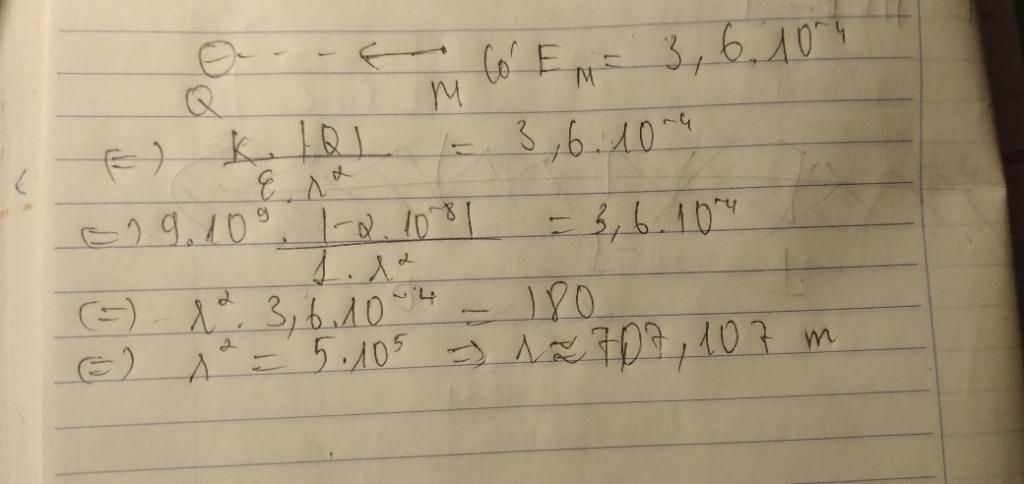 ⊖ - - - ← M Có E_M = 3,6.10⁻⁴
Q
(=) K.|Q| / ε.r² = 3,6.10⁻⁴
(=) 9.10⁹ . |-2.10⁻⁸| / 1.r² = 3,6.10⁻⁴
(=) r².3,6.10⁻⁴ = 180
(=) r² = 5.10⁵ => r ≈ 707,107 m